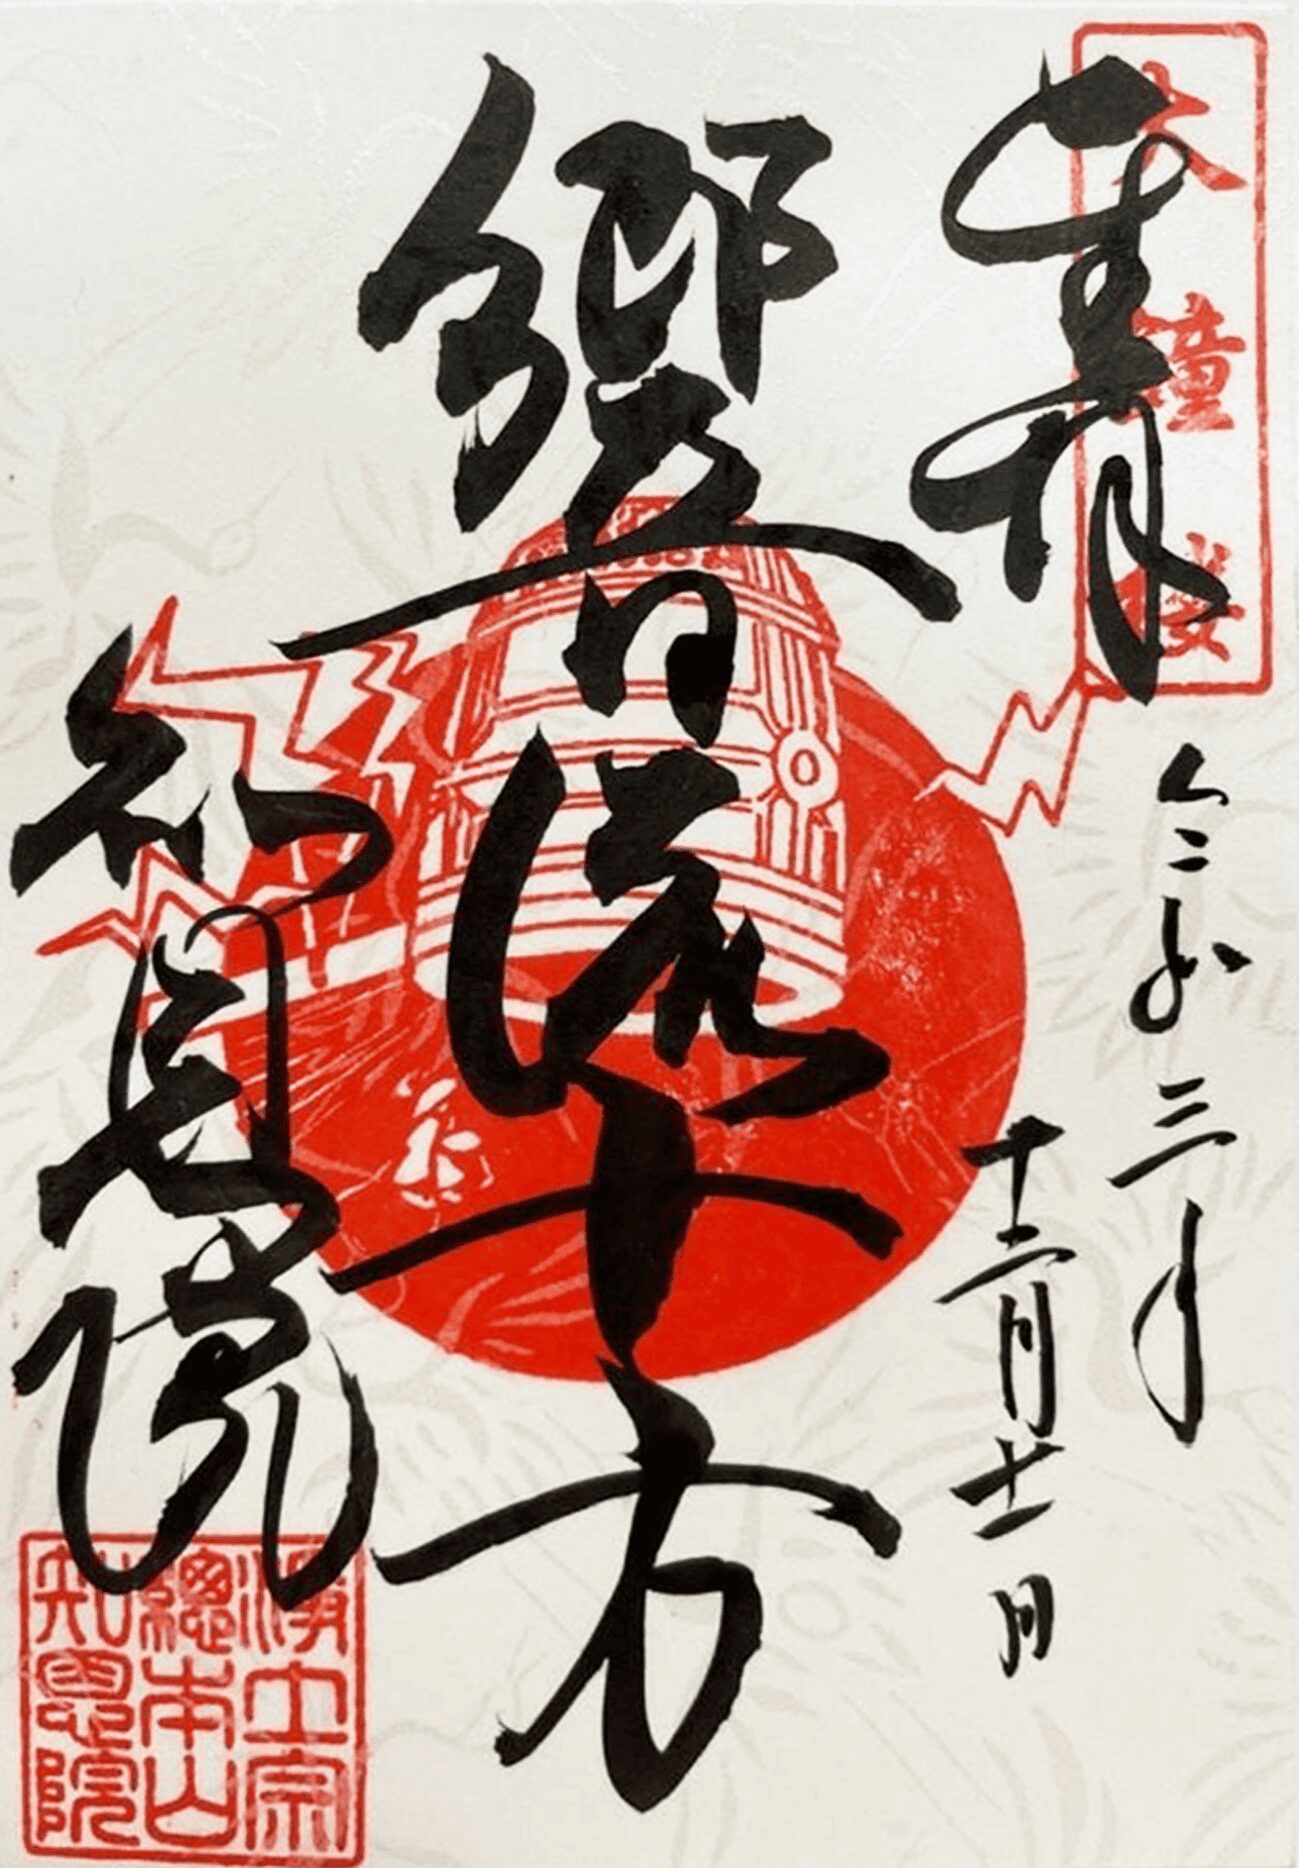 奉拝
大鐘楼
令和三年
十二月十一日
響流十方
知恩院
淨土宗
總本山
知恩院